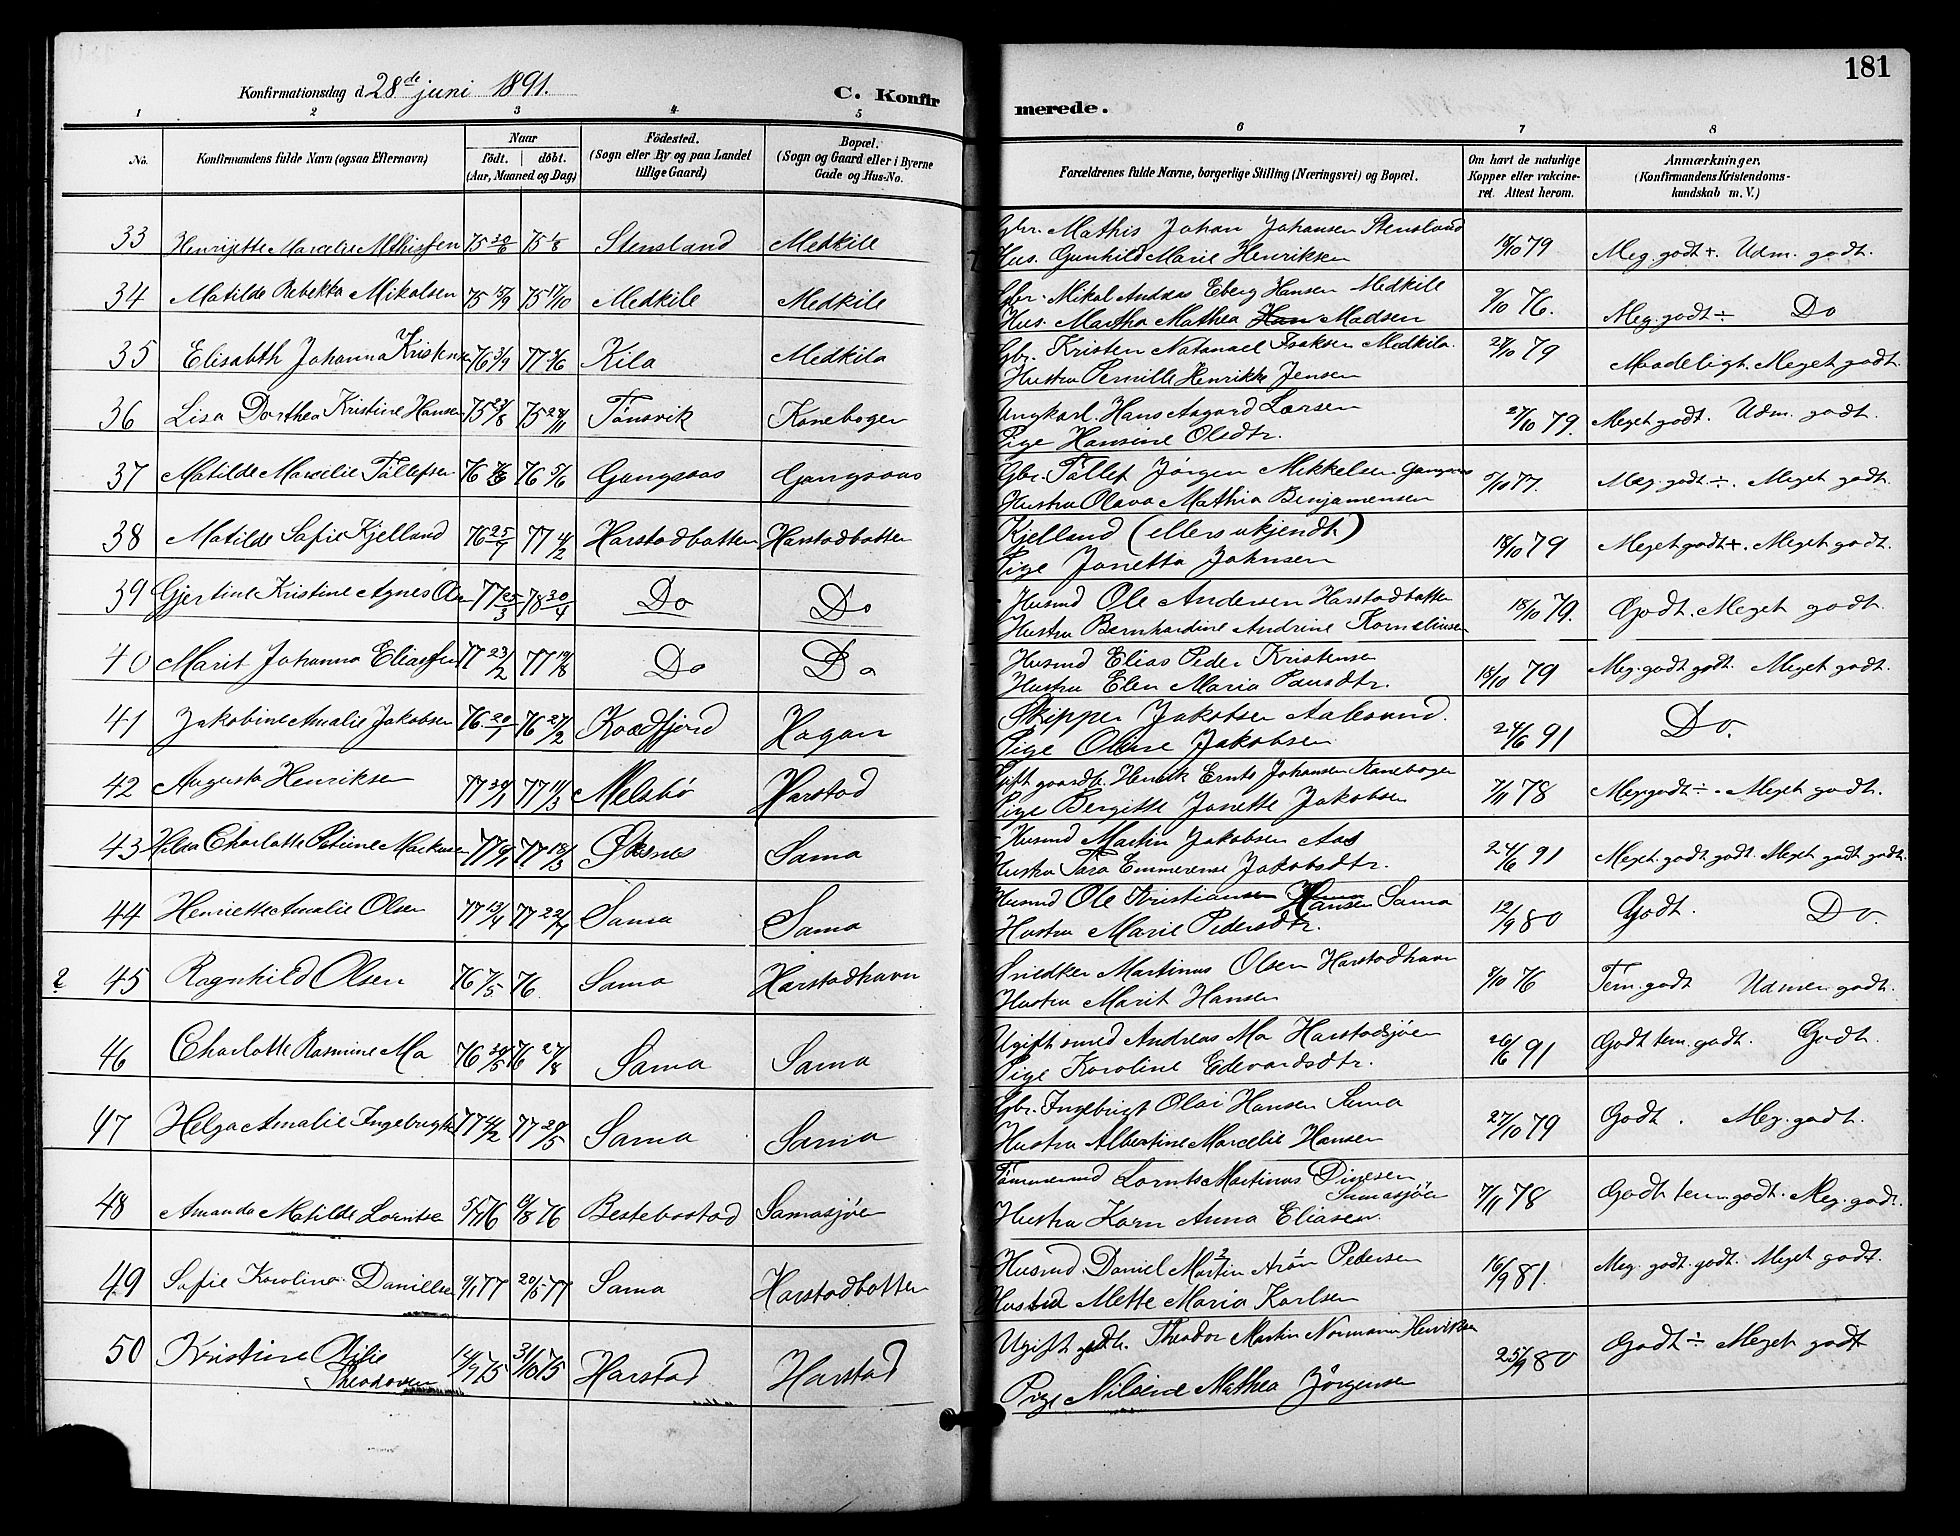 181
Konfirmationsdag d. 28de juni 1891.
C. Konfirmerede.
1 2 3 4 5 6 7 8
No. Konfirmandens fulde Navn (ogsaa Efternavn) Naar födt. döbt. (Aar, Maaned og Dag) Födested. (Sogn eller By og paa Landet tillige Gaard) Bopæl. (Sogn og Gaard eller i Byerne Gade og Hus-No. Forældrenes fulde Navne, borgerlige Stilling (Næringsvei) og Bopæl. Om havt de naturlige Kopper eller vakcineret. Attest herom. Anmærkninger. (Konfirmandens Kristendomskundskab m. V.)
33 Henrijette Marcelie Mathissen 75 30/6 75 1/8 Stensland Medkile Gbr. Mathis Johan Johansen Stensland 18/10 79 Meg. godt +. Udm. godt.
Hus. Gunhild Marie Henriksen
34 Matilde Rebekka Mikalsen 75 15/9 75 17/10 Medkile Medkile Gbr. Mikal Andreas Eberg Hansen Medkile 9/10 76. Meg. godt ÷ Do
Hus. Martha Mathea Madsen
35 Elisabth Johanna Kristensen 76 3/9 77 Kila Medkila Gbr. Kristen Natanael Isaksen Medkila. 27/10 79 Maadeligt. Meget godt.
Hustru Pernille Henrikke Jensen
36 Lisa Dorthea Kristine Hansen 75 23/8 75 Tönsvik Kanebogen Ungkarl. Hans Aagard Larsen 27/10 79. Meget godt. Udm. godt.
Pige Hansine Olsdtr.
37 Matilde Marcelie Töllefsen 76 76 5/6 Gangsaas Gangsaas Gbr. Töllef Jörgen Mikkelsen Gangsaas 5/10 77. Meg. godt ÷. Meget godt.
Hustru Olava Mathia Benjamensen
38 Matilde Safie Kjelland 76 77 4/2 Harstadbotten Harstadbotten Kjelland (ellers ukjendt) 18/10 79 Meget godt +. Meget godt.
Pige Janetta Johnsen
39 Gjertine Kristine Agnes Olsen 77 25/3 78 30/4 Do Do Husmd Ole Andersen Harstadbotten 18/10 79. Godt. Meget godt.
Hustru Bernhardine Andrine Korneliusen
40 Marit Johanna Eliassen 77 23/2 77 19/8 Do Do Husmd Elias Peder Kristensen 15/10 79 Meg. godt godt. Meget godt.
Hustru Elen Maria Paulsdtr.
41 Jakobine Amalie Jakobsen 76 20/1 76 27/2 Kvædfjord Hagan Skipper Jakobsen Aalesund. 24/6 91 Do.
Pige Oline Jakobsen
42 Augusta Henriksen 77 77 11/3 Melsbö Harstad Gift gaardb. Henrik Ernts Johansen Kanebogen 7/11 78 Meg. godt ÷. Meget godt.
Pige Bergitte Janette Jakobsen
43 Helga Charlotte Petrine Markusen 77 77 18/3 Öksnes Sama Husmd Martin Jakobsen Aas 24/6 91 Meget godt godt. Meget godt godt.
Hustru Sara Emmerense Jakobsdtr.
44 Henriette Amalie Olsen 77 13/4 77 22/7 Sama Sama Husmd Ole Kristiansen Hansen Sama 12/9 80 Godt. Do.
Hustru Marie Pedersdtr.
? 45 Ragnhild Olsen 76 7/5 76 Sama Harstadhavn Snedker Martinus Olsen Harstadhavn 8/10 76 Tem. godt Udmer. godt.
Hustru Marit Hansen
46 Charlotte Rasmine Mo 76 30/5 76 27/8 Sama Sama Ugift smed Andreas Mo Harstadsjöen 26/6 91 Godt tem. godt. Godt.
Pige Karoline Edevardsdtr.
47 Helga Amalie Ingebrigtsen 77 4/2 77 29/5 Sama Sama Gbr. Ingebrigt Olai Hansen Sama 27/10 79 Godt. Meg. godt.
Hustru Albertine Marcelie Hansen
48 Amanda Matilde Lorntsen 5/7 76 9/8 76 Bestebostad Samasjöen Tömmermd Lornts Martinus Digesen 7/11 78 Godt tem. godt. Meg. godt.
Samasjöen
Hustru Karn Anna Eliasen.
49 Safie Karolina Danielsen 9/1 77 20/5 77 Sama Harstadbotten Husmd. Daniel Martin Aron Pedersen 16/9 81. Meg. godt. godt. Meget godt.
Hustru Mette Maria Karlsen
50 Kristine Otilie Theodorsen 14/9 75 31/10 75 Harstad Harstad Ugift gdb. Theodor Martin Normann Henriksen 25/9 80 Godt ÷ Meget godt
Pige Nilsine Mathea Jörgensen